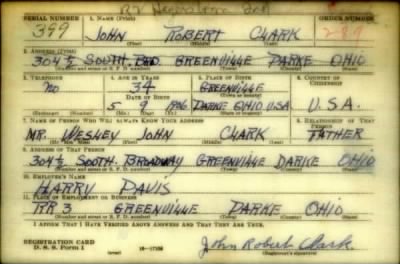 SERIAL NUMBER 1. NAME (Print) ORDER NUMBER
399 JOHN ROBERT CLARK 289
(First) (Middle) (Last)
2. ADDRESS (Print)
304½ SOUTH. BRD. GREENVILLE DARKE OHIO
(Number and street or R. F. D. number) (Town) (County) (State)
3. TELEPHONE 4. AGE IN YEARS 5. PLACE OF BIRTH 6. COUNTRY OF CITIZENSHIP
NO 34 GREENVILLE
DATE OF BIRTH
5 9 1906 DARKE OHIO U.S.A U.S.A.
(Mo.) (Day) (Yr.)
7. NAME OF PERSON WHO WILL ALWAYS KNOW YOUR ADDRESS 8. RELATIONSHIP OF THAT PERSON
MR. WESLEY JOHN CLARK FATHER
(Mr., Mrs., Miss) (First) (Middle) (Last)
9. ADDRESS OF THAT PERSON
304½ SOUTH. BROADWAY GREENVILLE DARKE OHIO
(Number and street or R. F. D. number) (Town) (County) (State)
10. EMPLOYER'S NAME
HARRY DAVIS
11. PLACE OF EMPLOYMENT OR BUSINESS
RR 3 GREENVILLE DARKE OHIO
(Number and street or R. F. D. number) (Town) (County) (State)
I AFFIRM THAT I HAVE VERIFIED ABOVE ANSWERS AND THAT THEY ARE TRUE.
REGISTRATION CARD
D. S. S. Form 1 John Robert Clark
(Registrant's signature)